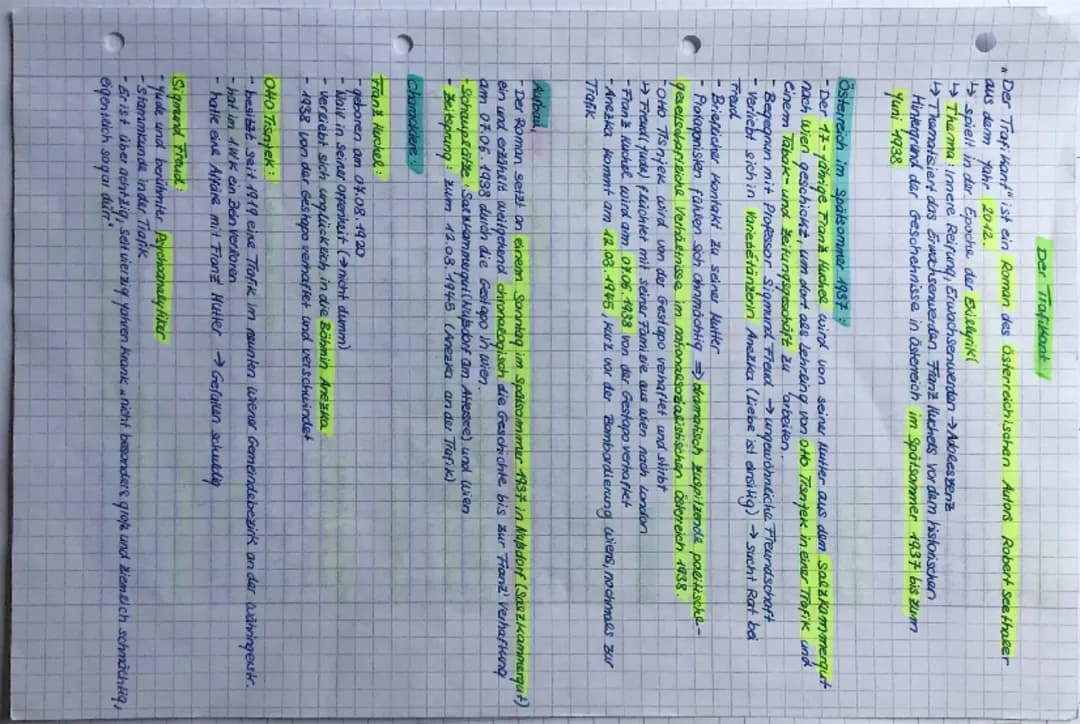 Der Trafikant
"Der Trafikant" ist ein Roman des österreichischen Autors Robert Seethaler
aus dem Jahr 2012.
↳ spielt in der Epoche der
↳ Thema: Innere Reifung, Erwachsenwerden → Adoleszenz
↳ Thematisiert das Erwachsenwerden Franz Huchels vor dem historischen
Hintergrund der Geschehnisse in Österreich im Spätsommer 1937 bis zum
Juni 1938
Österreich im Spätsommer 1937:
- Der 17-jährige Franz Huchel wird von seiner Mutter aus dem Salzkammergut
nach Wien geschickt, um dort als Lehrling von Otto Trsnjek in einer Trafik und
einem Tabak- und Zeitungsgeschäft zu arbeiten.
- Begegnen mit Professor Sigmund Freud → ungewöhnliche Freundschaft
- Verliebt sich in Varietétänzerin Anezka (Liebe ist einsitig) → sucht Rat bei
Freud
- Brieflicher Kontakt zu seiner Mutter
- Protagonisten fühlen sich ohnmächtig ⇒ dramatisch zuspitzende politische-
gesellschaftliche Verhältnisse im nationalsozialistischen Österreich 1938.
- Otto Trsnjek wird von der Gestapo verhaftet und stirbt
↳ Freud (Jude) flüchtet mit seiner Familie aus Wien nach London
- Franz Huchel wird am 07.06.1938 von der Gestapo verhaftet
- Anezka kommt am 12.03.1945, kurz vor der Bombardierung Wiens, nochmals zur
Trafik
Aufbau:
- Der Roman setzt an einem Sonntag im Spätsommer 1937 in Nußdorf (Salzkammergut)
ein und erzählt weitgehend chronologisch die Geschichte bis zur Franz' Verhaftung
am 07.06.1938 durch die Gestapo in Wien.
- Schauplätze: Salzkammergut (Nußdorf am Attersee), und Wien
- Zeitsprung: zum 12.03.1945 (Anezka an der Trafik)
Charaktere:
Franz Huchel:
- geboren am 07.08.1920
- Naiv in seiner offenheit (→ nicht dumm)
- verliebt sich unglücklich in die Böhmin Anezka
- 1938 von der Gestapo verhaftet und verschwindet
Otto Trsnjek:
- besitzt seit 1919 eine Trafik im neunten wiener Gemeindebezirk an der Währingerstr.
- hat im 1WK ein Bein verloren
- hatte eine Affäre mit Franz Mutter → Gefallen schuldig
Sigmund Freud:
- Jude und berühmter Psychoanalytiker
- Stammkunde in der Trafik
- Er ist über achtzig, seit vierzig Jahren krank „nicht besonders groß und ziemlich schmächtig,
eigentlich sogar dürr."